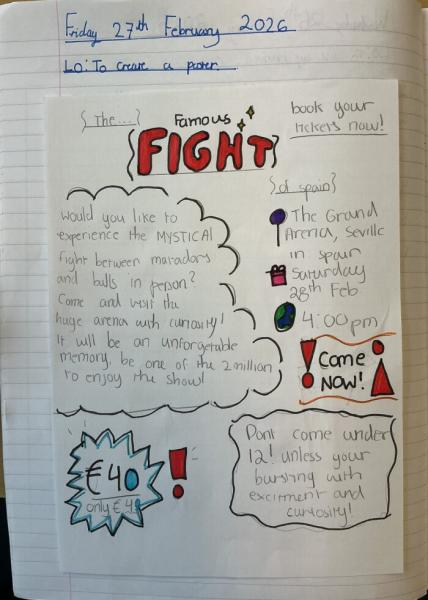 Friday 27th February 2026
LO: To create a poster.
The...
Famous
FIGHT
book your
tickets now!
of spain
Would you like to
experience the MYSTICAL
fight between matadors
and bulls in person?
Come and visit the
huge arena with curiosity!
It will be an unforgetable
memory, be one of the 2 million
to enjoy the show!
The Grand
Arena, Seville
in spain
Saturday
28th Feb
4:00pm
Come
NOW!
€40
only €
Dont come under
12! unless your
bursting with
excitment and
curiosity!